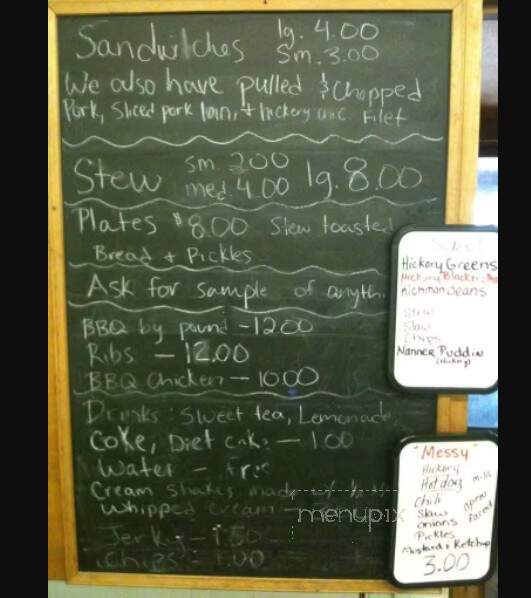 Sandwiches lg. 4.00
Sm. 3.00
We also have pulled & Chopped
Pork, Sliced pork loin, + hickory Filet
Stew sm 2.00 lg. 8.00
med 4.00
Plates $8.00 Slaw toasted
Bread + Pickles
Ask for sample of
BBQ by pound - 12.00
Ribs - 12.00
BBQ Chicken - 10.00
Drinks: Sweet tea, Lemonade
Coke, Diet - 1.00
Water - free
Cream Shakes made
Whipped Cream
Jerky - 1.50
Chips 1.00
Hickory Greens
Beans
Stew
Slaw
Chips
Nanner Puddin
"Messy"
Hickory
Hotdog
Chili
Slaw
onions
Pickles
Mustard & Ketchup
open
faced
3.00
menupix